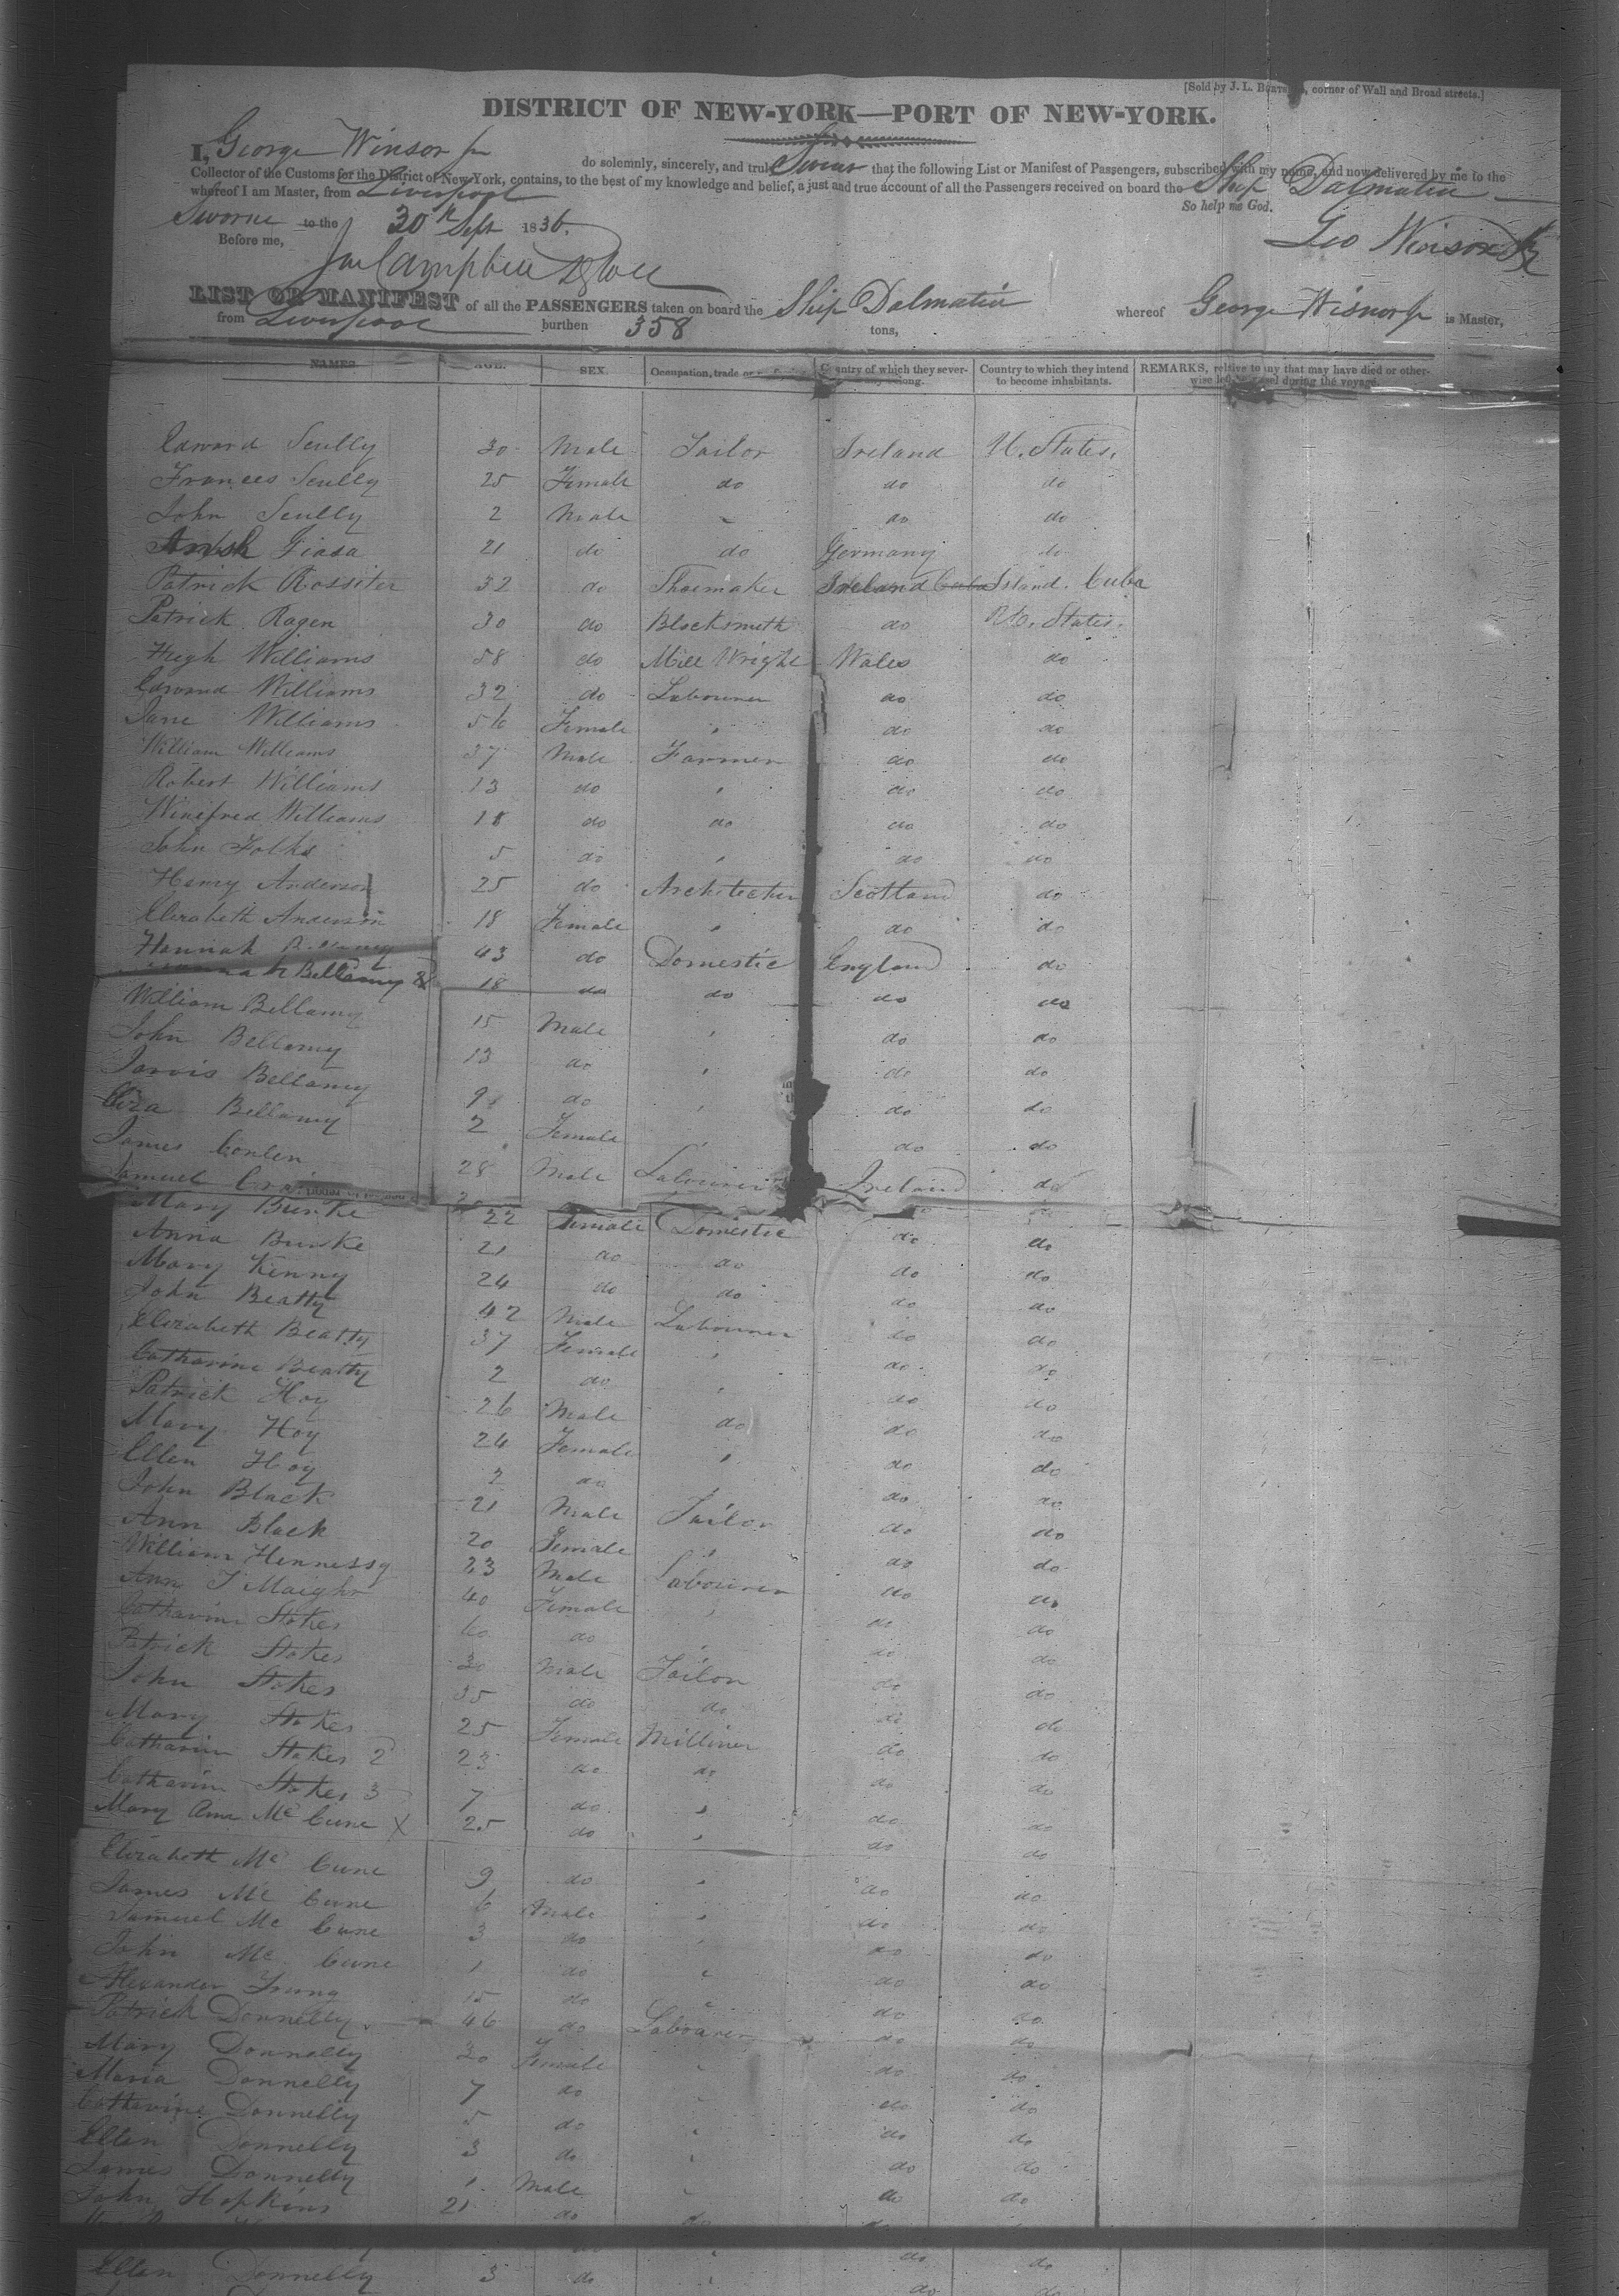 [Sold by J. L. , corner of Wall and Broad streets.]
DISTRICT OF NEW-YORK—PORT OF NEW-YORK.
I, George Winsor Jr do solemnly, sincerely, and truly Swear that the following List or Manifest of Passengers, subscribed with my name, and now delivered by me to the
Collector of the Customs for the District of New-York, contains, to the best of my knowledge and belief, a just and true account of all the Passengers received on board the Ship Dalmatia
whereof I am Master, from Liverpool
So help me God.
Sworne to the 30th Sept 1836.
Before me,
Geo Winsor Jr
Campbell
LIST OR MANIFEST of all the PASSENGERS taken on board the Ship Dalmatia whereof George Wisnor Jr is Master,
from Liverpool burthen 358 tons,
NAMES. AGE. SEX. Occupation, trade or Country of which they sever- Country to which they intend REMARKS, relative to any that may have died or other-
ally belong. to become inhabitants. wise left the vessel during the voyage.
Edward Scully 30 Male Tailor Ireland U. States.
Frances Scully 25 Female do do do
John Scully 2 Male do do
21 do do Germany do
Patrick Rossiter 32 do Shoemaker Ireland Cuba Island. Cuba
Patrick Ragen 30 do Blacksmith do U. States.
Hugh Williams 58 do Mill Wright Wales do
Edward Williams 32 do Labourer do do
Jane Williams 56 Female " do do
William Williams 37 Male Farmer do do
Robert Williams 13 do " do do
Winefred Williams 18 do do do do
John Folks 5 do " do do
Henry Anderson 25 do Architecter Scotland do
Elizabeth Anderson 18 Female " do do
Hannah Bellamy 43 do Domestic England do
Hannah Bellamy 2d 18 do do do do
William Bellamy 15 Male " do do
John Bellamy 13 do " do do
Jarvis Bellamy 9 do " do do
Eliza Bellamy 2 Female " do do
James Conlen 28 Male Labourer Ireland do
Samuel
Mary Burke 22 Female Domestic do do
Anna Burke 21 do do do do
Mary Kenny 24 do do do do
John Beatty 42 Male Labourer do do
Elizabeth Beatty 37 Female " do do
Catharine Beatty 2 do " do do
Patrick Hoy 26 Male do do do
Mary Hoy 24 Female " do do
Ellen Hoy 2 do " do do
John Black 21 Male Tailor do do
Ann Black 20 Female " do do
William Hennessy 23 Male Labourer do do
Ann T Maighr 40 Female " do do
Catharine Stokes 60 do " do do
Patrick Stokes 30 Male Tailor do do
John Stokes 35 do do do do
Mary Stokes 25 Female Milliner do do
Catharin Stokes 2 23 do do do do
Catharin Stokes 3 7 do " do do
Mary Ann Mc Cune X 25 do " do do
Elizabeth Mc Cune 9 do " do do
James Mc Cune 6 Male " do do
Samuel Mc Cune 3 do " do do
John Mc Cune 1 do " do do
Alexander 15 do " do do
Patrick Donnelly 46 do Labourer do do
Mary Donnelly 30 Female " do do
Maria Donnelly 7 do " do do
Catharine Donnelly 5 do " do do
Ellen Donnelly 3 do " do do
James Donnelly 1 Male " do do
John Hopkins 21 do do do
Ellen Donnelly 3 do " do do